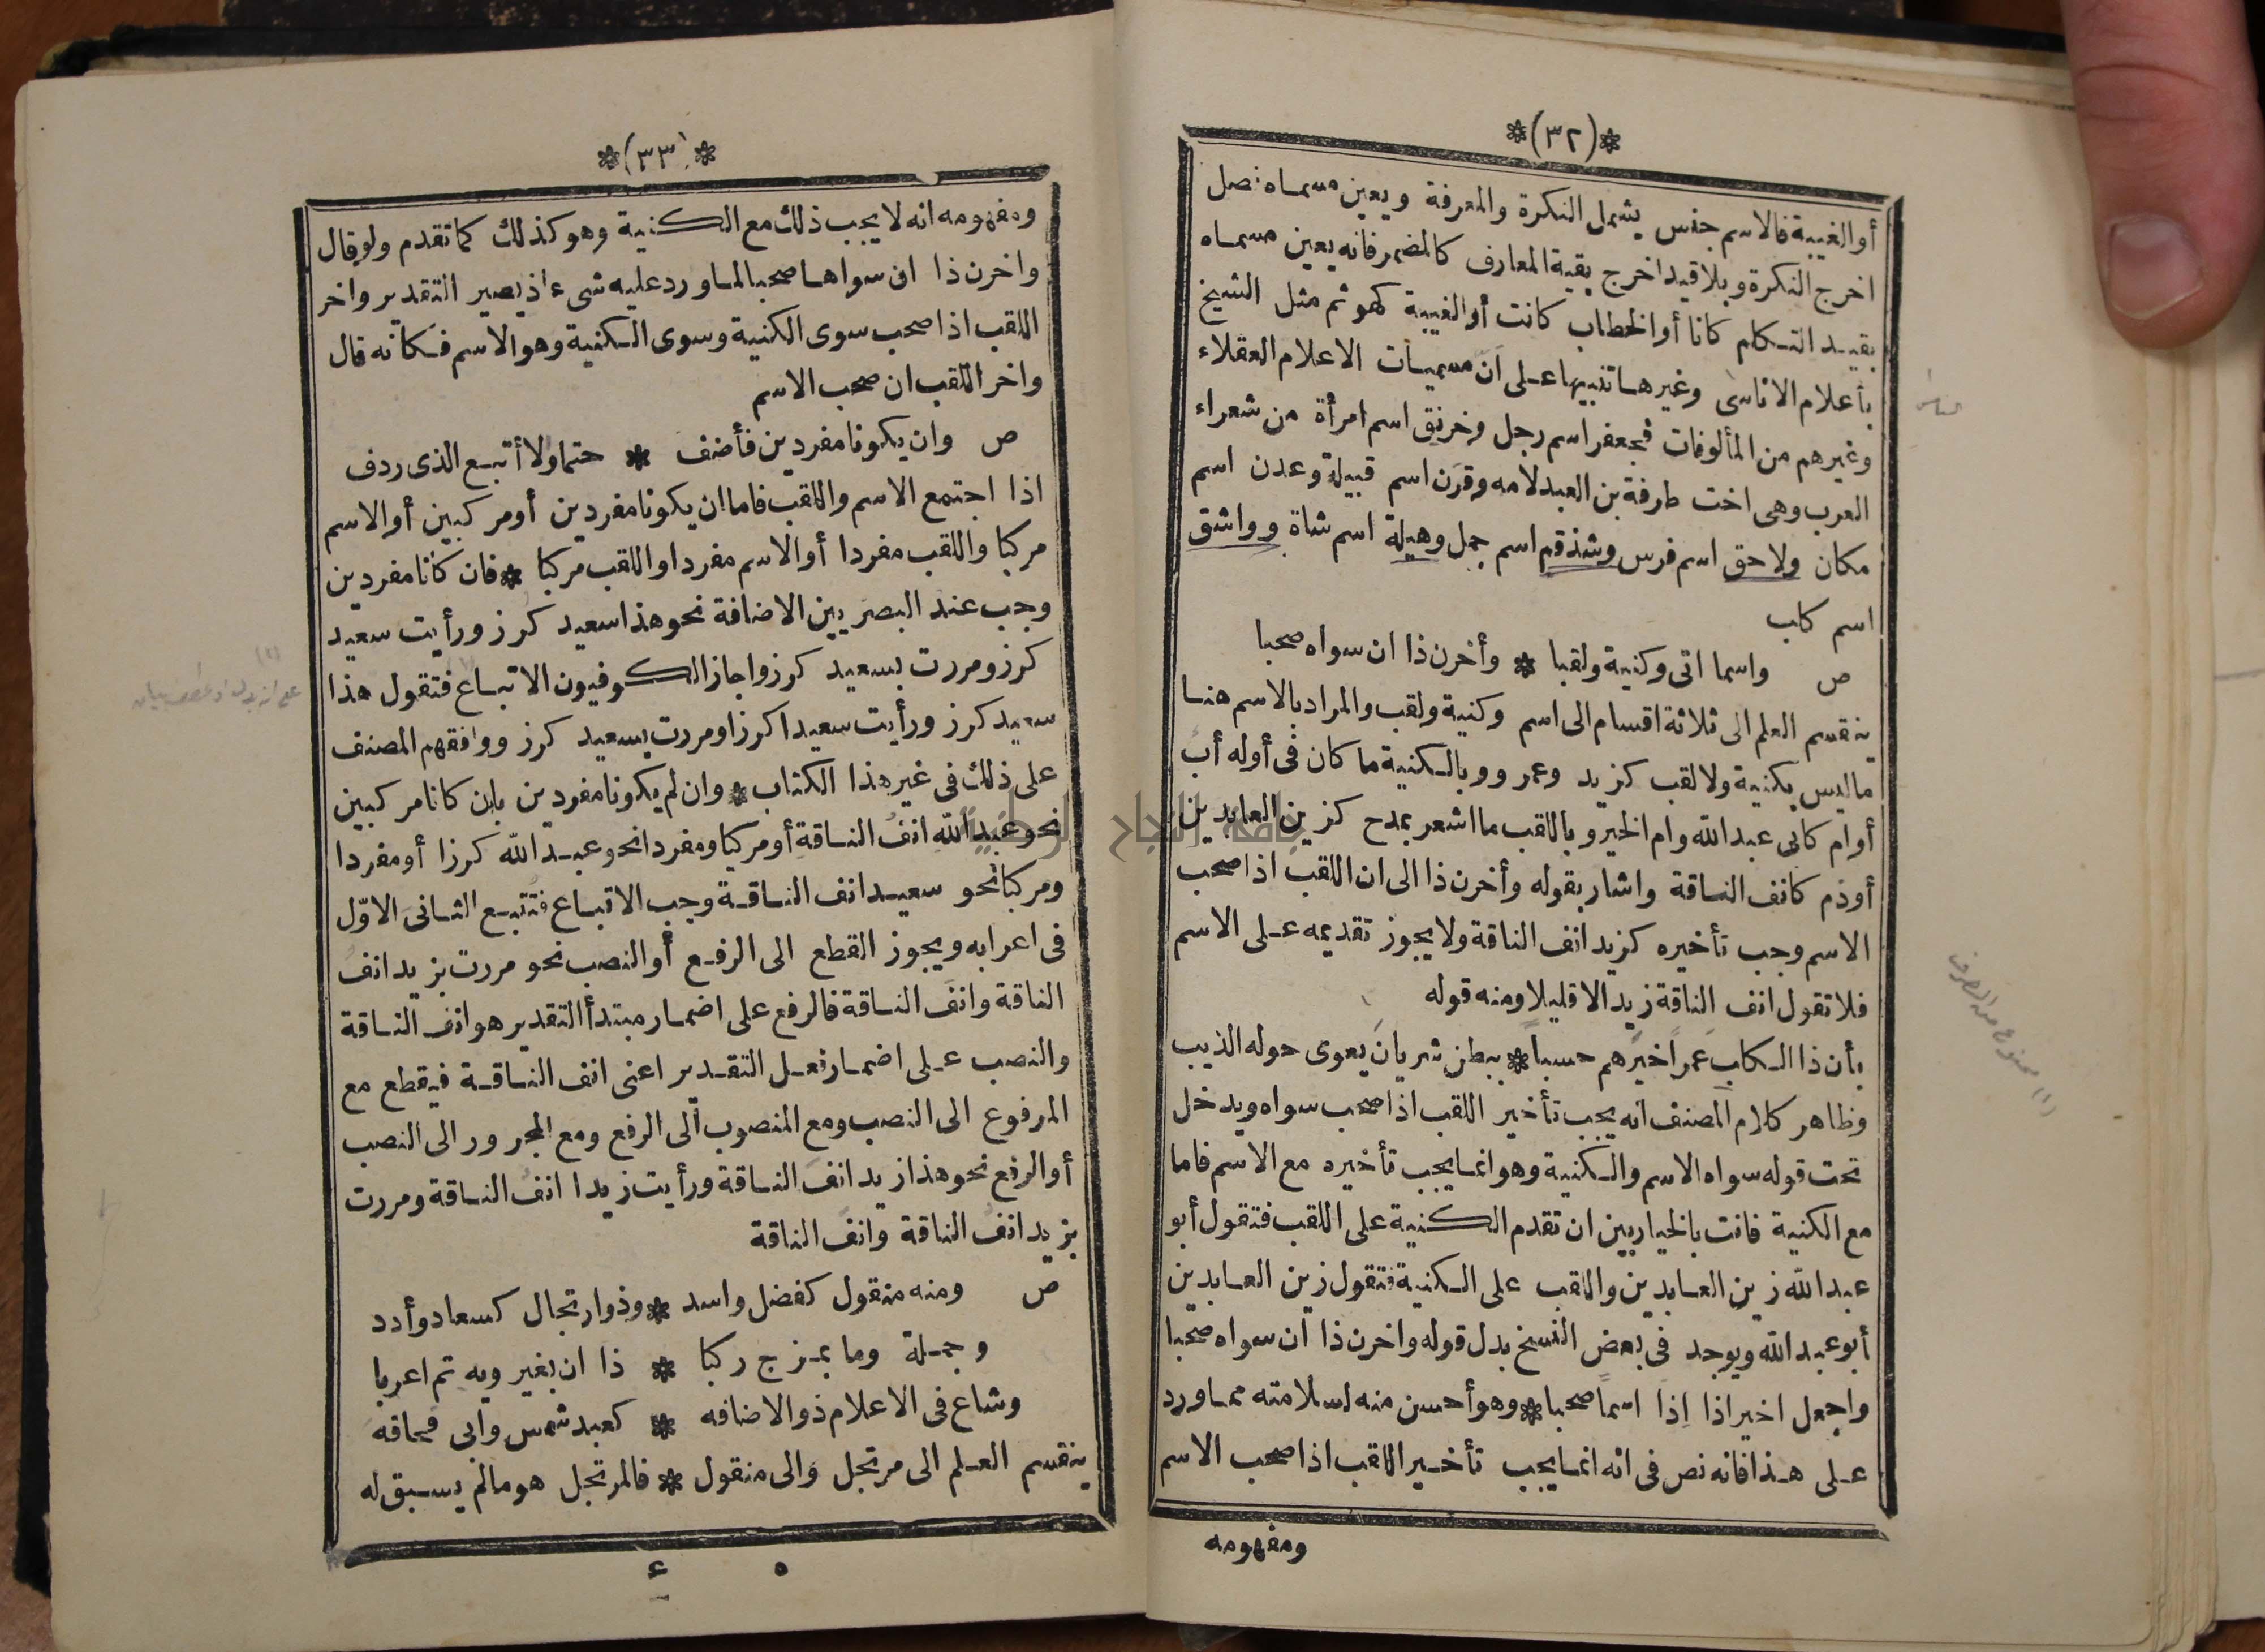 *(٣٢)*
أو الغيبة فالاسم جنس يشمل النكرة والمعرفة ويعين مسماه فصل
اخرج النكرة وبلا قيد اخرج بقية المعارف كالمضمر فانه يعين مسماه
بقيد التكلم كانا أو الخطاب كانت أو الغيبة كهو ثم مثل الشيخ
بأعلام الاناسى وغيرها تنبيها على ان مسميات الاعلام العقلاء
وغيرهم من المألوفات فجعفر اسم رجل وخرنق اسم امرأة من شعراء
العرب وهى اخت طرفة بن العبد لامه وقرن اسم قبيلة وعدن اسم
مكان ولاحق اسم فرس وشذقم اسم جمل وهيلة اسم شاة وواشق
اسم كلب
ص واسما اتى وكنية ولقبا * وأخرن ذا ان سواه صحبا
ينقسم العلم الى ثلاثة اقسام الى اسم وكنية ولقب والمراد بالاسم هنا
ما ليس بكنية ولا لقب كزيد وعمرو وبالكنية ما كان فى أوله أب
أو ام كابى عبد الله وام الخير وباللقب ما اشعر بمدح كزين العابدين
أو ذم كانف الناقة واشار بقوله وأخرن ذا الى ان اللقب اذا صحب
الاسم وجب تأخيره كزيد انف الناقة ولا يجوز تقديمه على الاسم
فلا تقول انف الناقة زيد الا قليلا ومنه قوله
بأن ذا الكلب عمرا خيرهم حسبا * ببطن شريان يعوى حوله الذيب
وظاهر كلام المصنف انه يجب تأخير اللقب اذا صحب سواه ويدخل
تحت قوله سواه الاسم والكنية وهو انما يجب تأخيره مع الاسم فاما
مع الكنية فانت بالخيار بين ان تقدم الكنية على اللقب فتقول أبو
عبد الله زين العابدين واللقب على الكنية فتقول زين العابدين
أبو عبد الله ويوجد فى بعض النسخ بدل قوله واخرن ذا ان سواه صحبا
واجعل اخيرا ذا إذا اسما صحبا * وهو أحسن منه لسلامته مما ورد
على هذا فانه نص فى انه انما يجب تأخير اللقب اذا صحب الاسم
ومفهومه
*(٣٣)*
ومفهومه انه لا يجب ذلك مع الكنية وهو كذلك كما تقدم ولو قال
واخرن ذا ان سواها صحبا لما ورد عليه شىء اذ يصير التقدير واخر
اللقب اذا صحب سوى الكنية وسوى الكنية وهو الاسم فكانه قال
واخر اللقب ان صحب الاسم
ص وان يكونا مفردين فأضف * حتما ولا أتبع الذى ردف
اذا اجتمع الاسم واللقب فاما ان يكونا مفردين أو مركبين أو الاسم
مركبا واللقب مفردا أو الاسم مفردا واللقب مركبا * فان كانا مفردين
وجب عند البصريين الاضافة نحو هذا سعيد كرز ورأيت سعيد
كرز ومررت بسعيد كرز واجاز الكوفيون الاتباع فتقول هذا
سعيد كرز ورأيت سعيدا كرزا ومررت بسعيد كرز ووافقهم المصنف
على ذلك فى غير هذا الكتاب * وان لم يكونا مفردين بان كانا مركبين
نحو عبد الله انف الناقة أو مركبا ومفردا نحو عبد الله كرزا أو مفردا
ومركبا نحو سعيد انف الناقة وجب الاتباع فتتبع الثانى الاوّل
فى اعرابه ويجوز القطع الى الرفع أو النصب نحو مررت بزيد انف
الناقة وانف الناقة فالرفع على اضمار مبتدأ التقدير هو انف الناقة
والنصب على اضمار فعل التقدير اعنى انف الناقة فيقطع مع
المرفوع الى النصب ومع المنصوب الى الرفع ومع المجرور الى النصب
أو الرفع نحو هذا زيد انف الناقة ورأيت زيدا انف الناقة ومررت
بزيد انف الناقة وانف الناقة
ص ومنه منقول كفضل واسد * وذو ارتجال كسعاد وأدد
وجملة وما بمزج ركبا * ذا ان بغير ويه تم اعربا
وشاع فى الاعلام ذو الاضافه * كعبد شمس وابى قحافه
ينقسم العلم الى مرتجل والى منقول * فالمرتجل هو ما لم يسبق له
٥ ٤
جامعة النجاح الوطنية